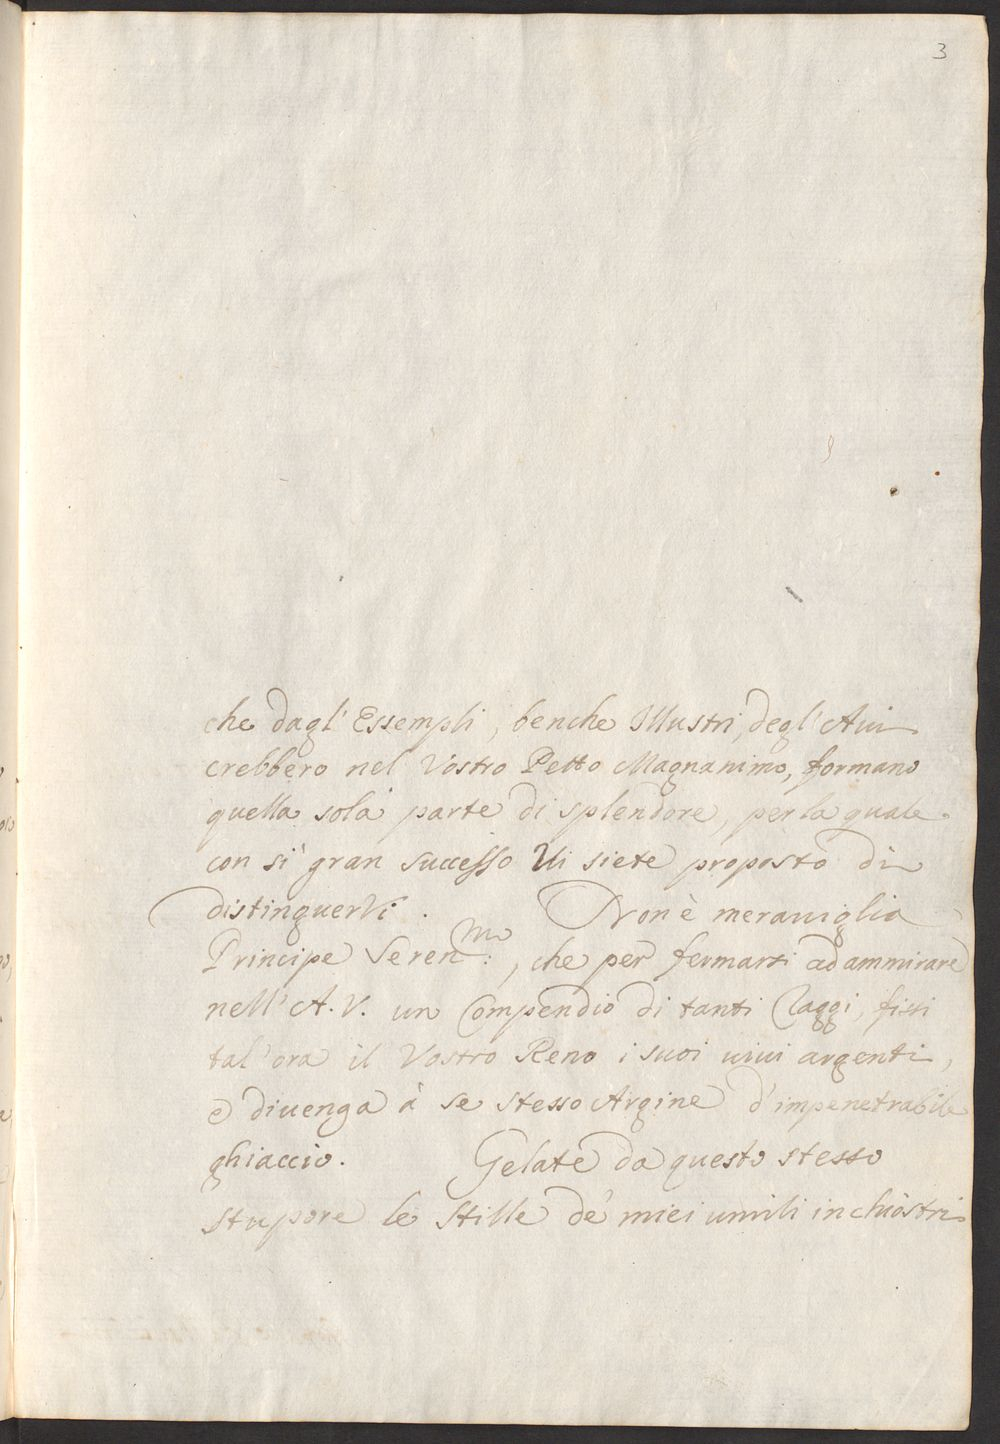 3
che dagl' Essempli, benche Illustri, degl' Aui
crebbero nel Vostro Petto Magnanimo, formano
quella sola parte di splendore, per la quale
con sì gran successo Ui siete proposto di
distinguerVi. Non è merauiglia
Principe Seren.mo, che per fermarsi ad ammirare
nell' A. V. un Compendio di tanti Raggi, fissi
tal' ora il Vostro Reno i suoi uiui argenti,
e diuenga à se stesso Argine d' impenetrabile
ghiaccio. Gelate da questo stesso
stupore le stille de' miei umili inchiostri